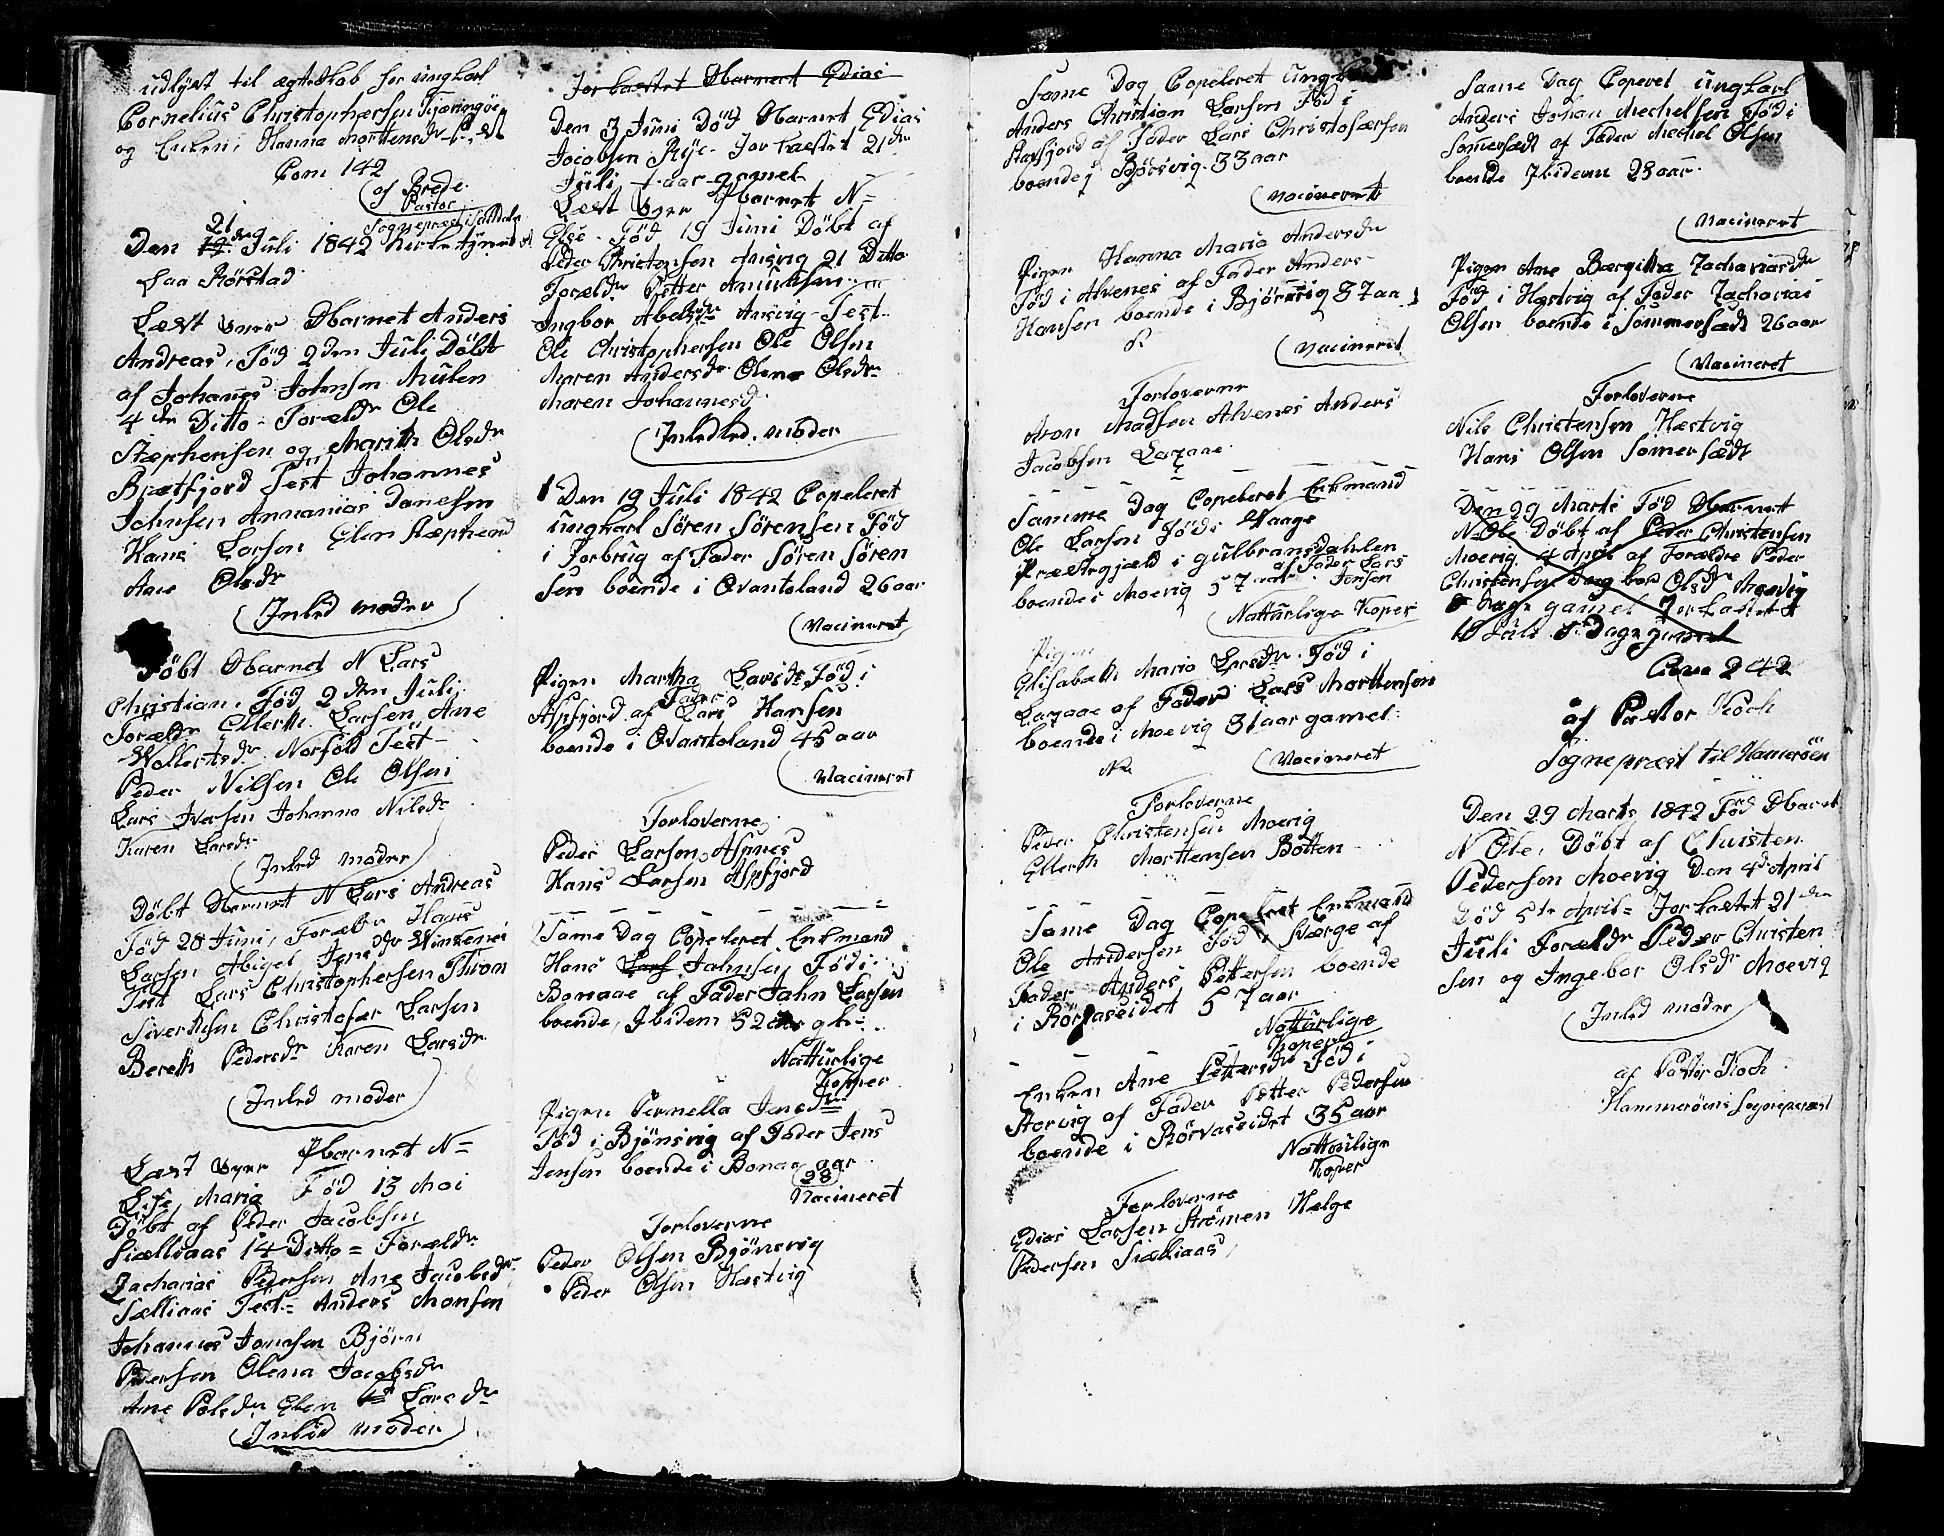 udlyst til ægteskab for ungkarl
Cornelius Christophersen Tjæringøe
og Enken, Hanna Mortensdr
Com 142
af Brede
Pastor
Sognepræst i Saltdalen
21
Den 19de Juli 1842 Kirketjenest
paa Rørstad
Læst over Ibarnet Anders
Andreas, Fød 2den Juli Døbt
af Johanes Johnsen Mulen
4de Ditto - Forældr Ole
Stæphensen og Marith Olsdr
Brætfjord Test Johannes
Johnsen Annanias Danelsen
Hans Larsen Elen Stæphensd
Ane Olsdr
Inled moder
Døbt Ibarnet N Lars
Christian, Fød 2den Juli
Forældr Ellerth Larsen, Ane
Wollertsdr Norfold Test
Peder Nilsen Ole Olsen
Lars Iversen Johanna Nilsdr
Karen Larsdr
Inled moder
Døbt Ibarnet N Lars Andreas
Fød 28 Juni, Forældr Hans
Larsen Abigel Jensdr Winkenes
Test Lars Christophersen Thron
Sivertsen Christofær Larsen
Bereth Pedersdr Karen Larsdr
Inled moder
Læst over Pbarnet N=
Lise Maria Fød 13 Mai
Døbt af Peder Jacobsen
Siælliaas 14 Ditto = Forældr
Zacharias Pedersen Ane Jacobsdr
Siælliaas Test = Anders Monsen
Johannes Jonsen Bjørn
Pedersen Olena Jacobsdr
Ane Polsdr Elen Larsdr
Inled moder
Jorkastet Ibarnet Edias
Den 3 Juni Død Ibarnet Edias
Jacobsen Rye - Jorkastet 21de
Juli - 1 aar gamel
Læst over Pbarnet N=
Else - Fød 19 Juni Døbt af
Peder Christensen Ansvig 21 Ditto
Forældr Petter Amundsen
Ingbor Abelsdr Ansvig - Test
Ole Christophersen Ole Olsen
Maren Andersdr Olena Olsdr
Maren Johannesd
Inledled. moder
Den 19 Juli 1842 Copeleret
ungkarl Søren Sørensen Fød
i Forbrug af Fader Søren Søren
sen boende i Qvantoland 26 aar
Vacineret
Pigen Martha Larsdr Fød i
Aspfjord af Fader Lars Hansen
boende i Qvantoland 45 aar
Vacineret
Forloverne
Peder Larsen Aspnes
Hans Larsen Aspfjord
Same Dag Copeleret Enkmand
Hans Lars Jahnsen Fød i
Bonaae af Fader Jahn Larsen
boende, Ibidem 52 aar gl
Natturlige
Kopper
Pigen Pernella Jensdr
Fød i Bjønsvig af Fader Jens
Jensen boende i Bonaae aar
28
Vacineret
Forloverne
Peder Olsen Bjønsvig
Peder Olsen Hæstvig
Same Dag Copeleret ungkarl
Anders Christian Larsen Fød i
Stavfjord af Fader Lars Christofærsen
boende i Bjørsvig 33 aar
Vacineret
Pigen Hanna Maria Andersdr
Fød i Alvenes af Fader Anders
Hansen boende i Bjørnsvig 37 aar
Vacineret
Forloverne
Aron Madsen Alvenes Anders
Jacobsen Laxaae
Samme Dag Copeleret Enkmand
Ole Larsen Fød i Vaage
Præstegjæld i Gulbransdahlen
af Fader Lars
boende i Moevig 57 aar Jensen
Natturlige Koper
Pigen
Elisabeth Maria Larsdr Fød i
Laxaae af Fader Lars Morttensen
boende i Moevig 31 aar gamel
Vacineret
Forloverne
Peder Christensen Moevig
Ellerth Morttensen Botten
Same Dag Copeleret Enkmand
Ole Andersen Fød i Værge af
Fader Anders Pettersen boende
i Rørvaseidet 57 aar
Natturlige
Koper
Enken Ane Pettersdr Fød i
Storvig af Fader Petter Pedersen
boende i Rørvaseidet 35 aar
Natturlige
Koper
Forloverne
Edias Larsen Strømen Helge
Pedersen Siælliaas
Same Dag Coperet ungkarl
Anders Johan Mechelsen Fød i
Somersædt af Fader Mechel Olsen
boende Ibidem 28 aar
Vacineret
Pigen Ane Bærgitha Zachariasdr
Fød i Hæstvig af Fader Zacharias
Olsen boende i Sommersædt 26 aar
Vacineret
Forloverne
Nils Christensen Hæstvig
Hans Olsen Somersædt
Den 29 Marts Fød Ibarnet
N Ole Døbt af Peder Christensen
Moevig 4 April af Forældre Peder
Christensen Olsdr Moevig
gamel Jorkastet
Juli 8 Dage gamel
Com 242
af Pastor Koch
Sognepræst til Hamerøen
Den 29 Marts 1842 Fød Ibarnet
N Ole, Døbt af Christen
Pedersen Moevig Den 4de April
Død 5te April = Jorkastet 21de
Juli Forældr Peder Christen
sen og Ingebor Olsdr Moevig
Inled moder
af Pastor Koch
Hammerøens Sognepræst